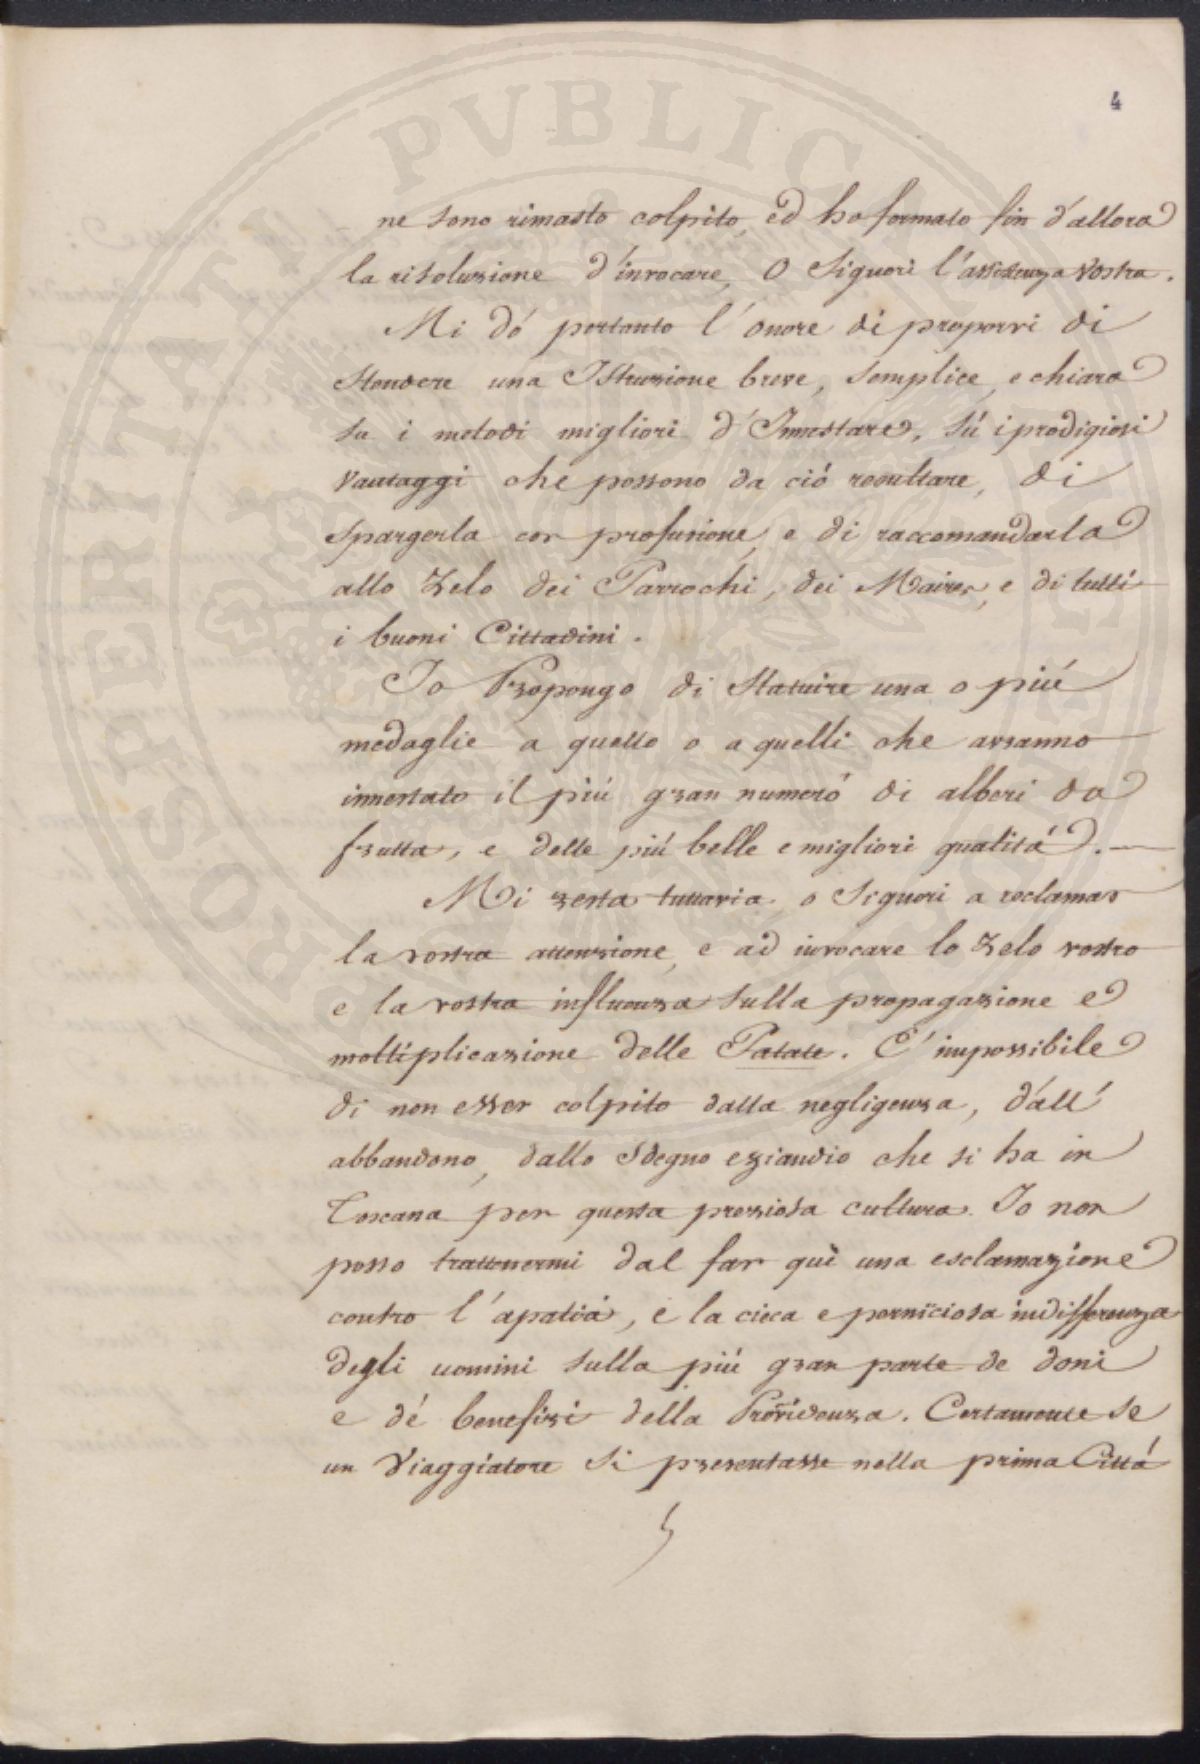 4
ne sono rimasto colpito, ed ho formato fin d'allora
la risoluzione d'invocare, O Signori l'assistenza Vostra.
Mi dó pertanto l'onore di proporvi di
Stendere una Istruzione breve, semplice, e chiara
su i metodi migliori d'Innestare, sú i prodigiosi
Vantaggi che possono da ció resultare, di
Spargerla con profusione, e di raccomandarla
allo Zelo dei Parrochi, dei Maires, e di tutti
i buoni Cittadini.
Io Propongo di Statuire una o piú
medaglie a quello o a quelli che avranno
innestato il piú gran numeró di alberi da
frutta, e delle piú belle e migliori qualitá.
Mi resta tuttavia, o Signori a reclamar
la vostra attenzione, e ad invocare lo Zelo vostro
e la vostra influenza sulla propagazione e
moltiplicazione delle Patate. É impossibile
di non esser colpito dalla negligenza, dall'
abbandono, dallo Sdegno eziandio che si ha in
Toscana per questa preziosa cultura. Io non
posso trattenermi dal far quì una esclamazione
contro l'apatiá, e la cieca e perniciosa indifferenza
degli uomini sulla piú gran parte de doni
e dé benefizi della Providenza. Certamente se
un Viaggiatore si presentasse nella prima Cittá
PROSPERITATI PVBLICAE